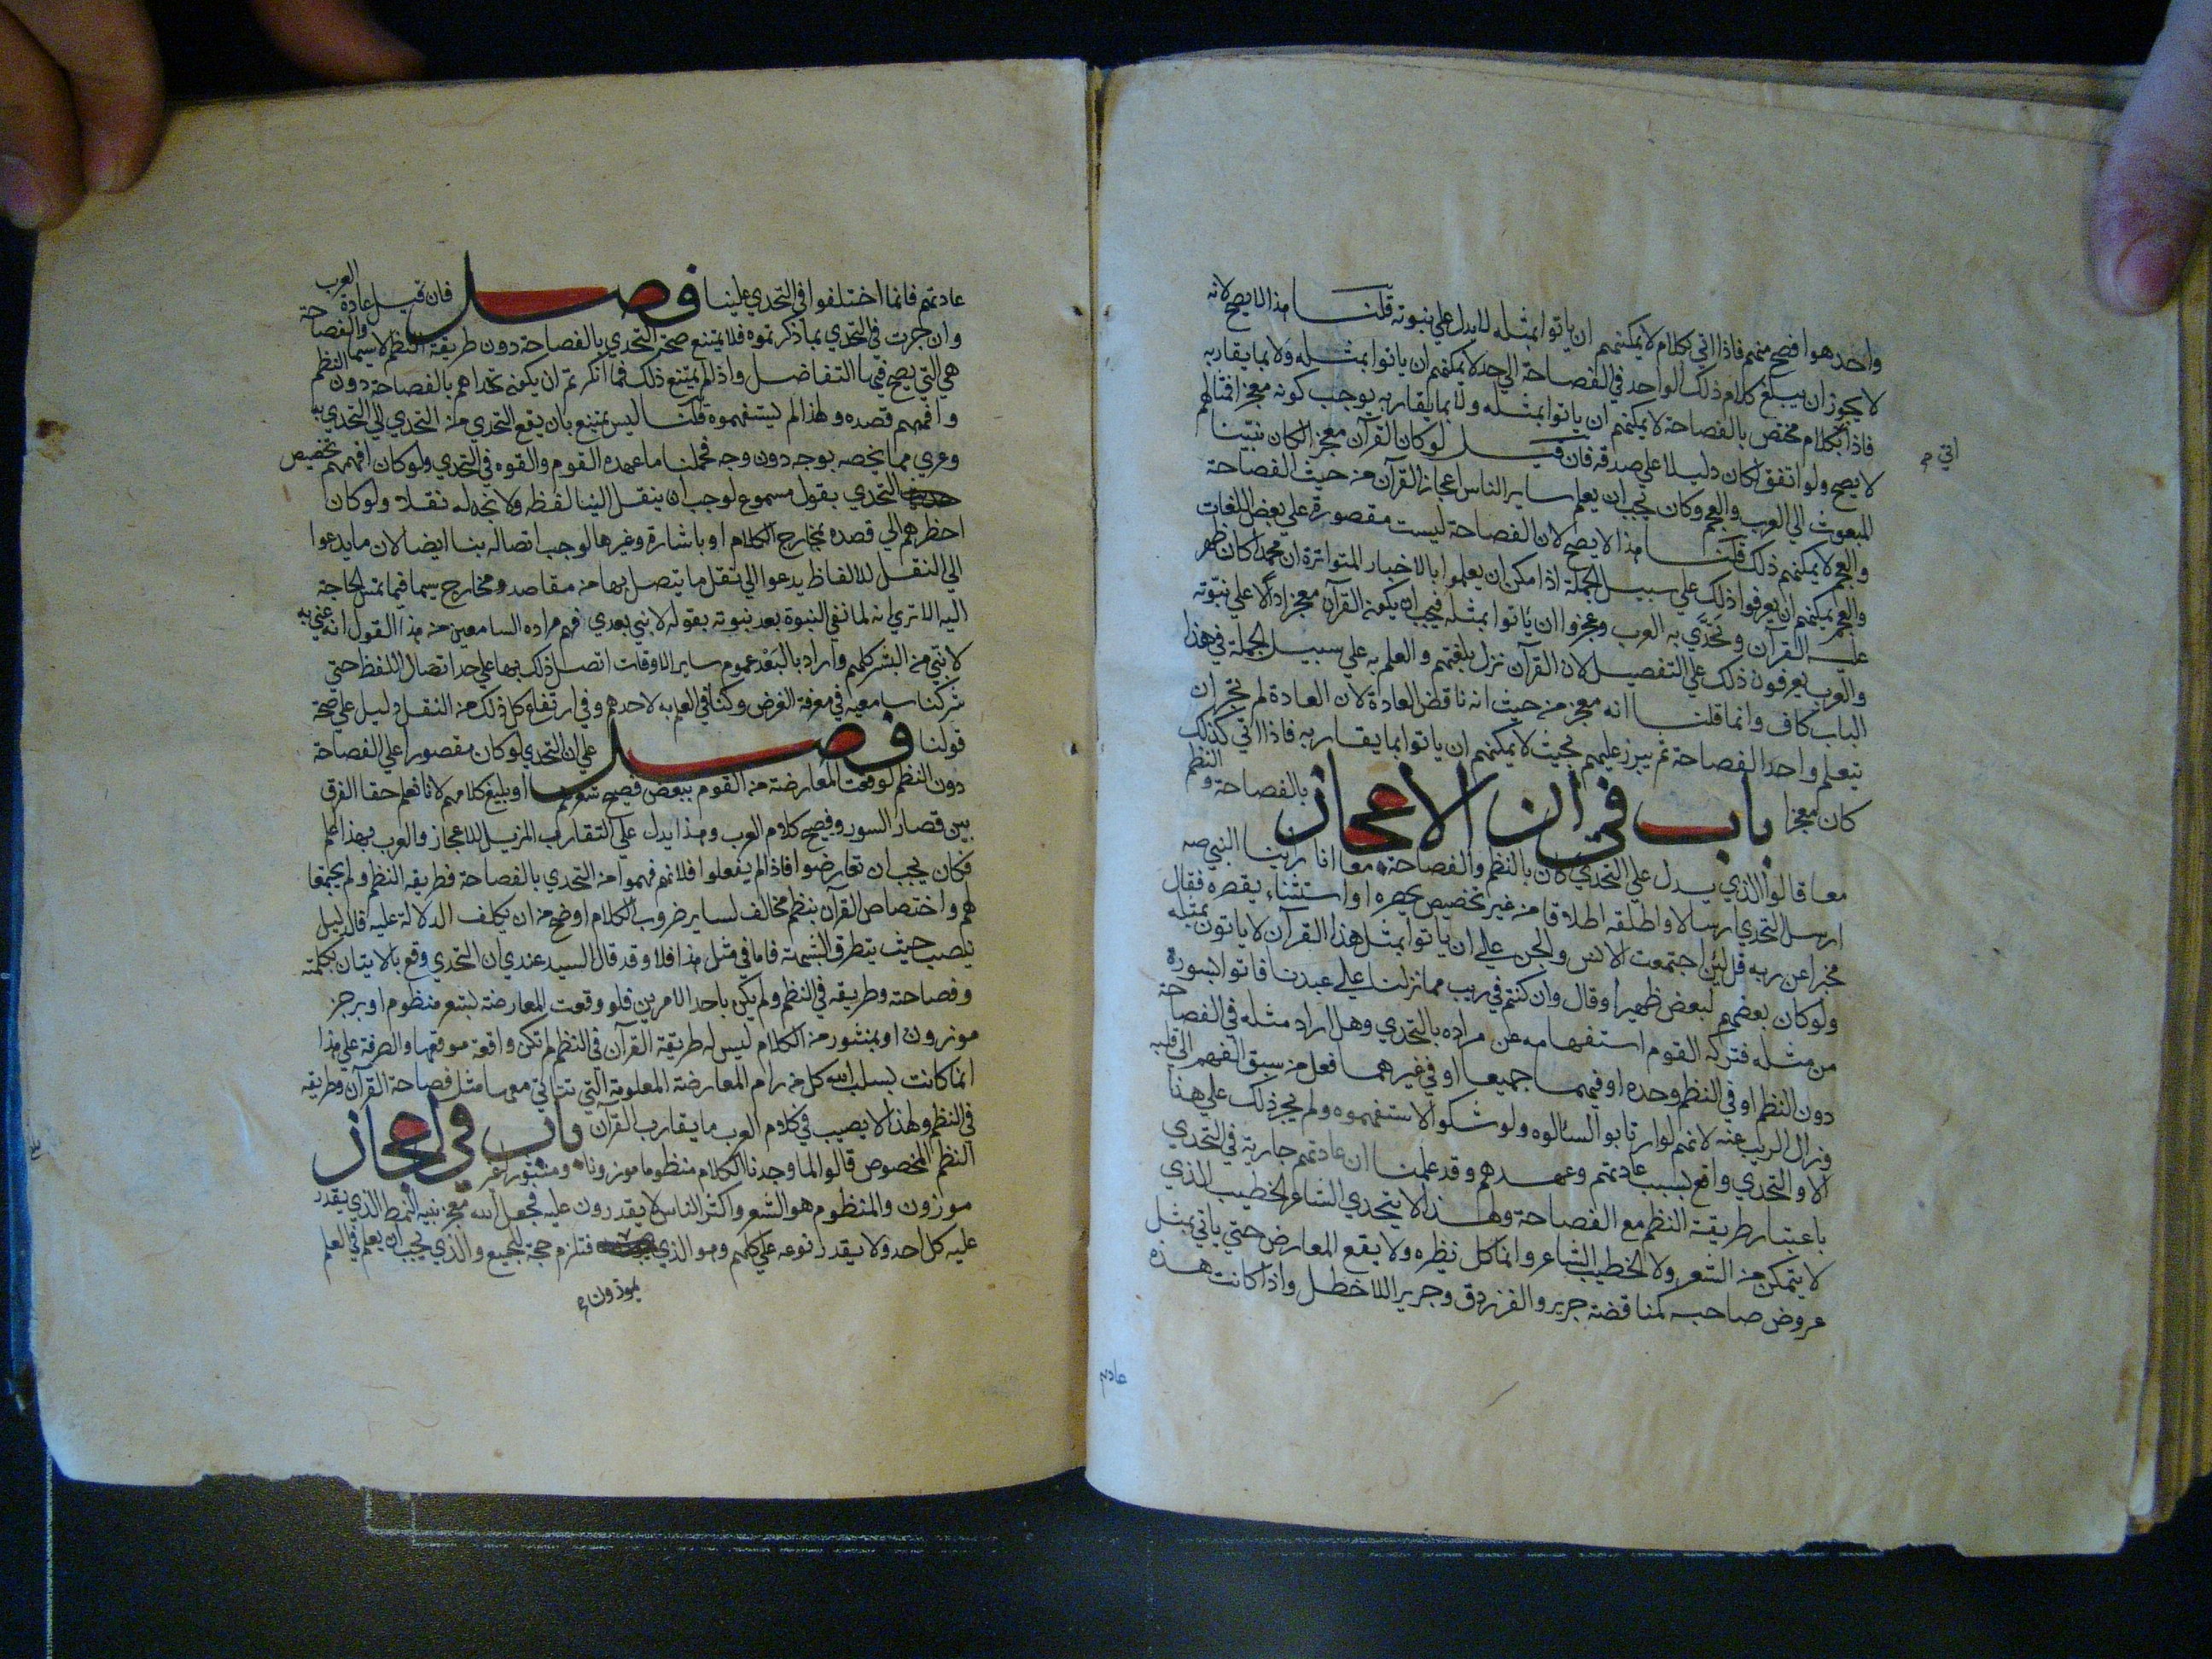 واحد هو افصح منهم فاذا اتي بكلام لا يمكنهم ان ياتوا بمثله لا يدل علي نبوته قلنا هذا لا يصح لانه
لا يجوز ان يبلغ كلام ذلك الواحد في الفصاحة الي حد لا يمكنهم ان ياتوا بمثله ولا بما يقاربه
فاذا بكلام مختص بالفصاحة لا يمكنهم ان ياتوا بمثله ولا بما يقاربه يوجب كونه معجزا فمثالهم
اتي
لا يصح ولو اتفق لكان دليلا علي صدقه فان قيل لو كان القرآن معجزا لكان نبينا
المبعوث الي العرب والعجم وكان يجب ان يعلم ساير الناس اعجاز القرآن من حيث الفصاحة
والعجم لا يمكنهم ذلك قلنا هذا لا يصح لان الفصاحة ليست مقصورة علي بعض اللغات
والعجم يمكنهم ان يعرفوا ذلك علي سبيل الجملة اذا مكن ان يعلموا بالاخبار المتواترة ان محمدا كان ظهر
عليه القرآن وتحدي به العرب وعجزوا ان ياتوا بمثله فيجب ان يكون القرآن معجزا دالا علي نبوته
والعرب يعرفون ذلك علي التفصيل لان القرآن نزل بلغتهم والعلم به علي سبيل الجملة في هذا
الباب كاف وانما قلنا انه معجز من حيث انه ناقض العادة لان العادة لم تجر ان
يتعلم واحد الفصاحة ثم يبرز عليهم بحيث لا يمكنهم ان ياتوا بما يقاربه فاذا اتي كذلك
كان معجزا باب في ان الاعجاز بالفصاحة والنظم
معا قالوا الذي يدل علي التحدي كان بالنظم والفصاحة معا انا رينا النبي صه
ارسل التحدي ارسالا واطلقه اطلاقا من غير تخصيص يحصره او استثناء يقصره فقال
مخبرا عن ربه قل لئن اجتمعت الانس والجن علي ان ياتوا بمثل هذا القرآن لا ياتون بمثله
ولو كان بعضهم لبعض ظهيرا وقال وان كنتم في ريب مما نزلنا علي عبدنا فاتوا بسورة
من مثله فترك القوم استفهامه عن مراده بالتحدي وهل اراد مثله في الفصاحة
دون النظم او في النظم وحده او فيهما جميعا او في غيرهما فعل من سبق الفهم الي قلبه
وزال الريب عنه لانهم لو ارتابوا لسألوه ولو شكوا لاستفهموه ولم يجر ذلك علي هذا
الا والتحدي واقع بسبب عادتهم وعهدهم وقد علمنا ان عادتهم جارية في التحدي
باعتبار طريقة النظم مع الفصاحة ولهذا لا يتحدي الشاعر الخطيب الذي
لا يتمكن من الشعر ولا الخطيب الشاعر وانما كل نظيره ولا يقع المعارض حتي ياتي بمثل
عروض صاحبه كمناقضة جرير والفرزدق وجرير الاخطل واذا كانت هذه
عادتهم
عادتهم فانما اختلفوا في التحدي علينا فصل فان قيل عادة العرب
وان جرت في التحدي بما ذكرتموه فلا يمتنع صحة التحدي بالفصاحة دون طريقة النظم لا سيما والفصاحة
هي التي يصح فيها التفاضل واذا لم يمتنع ذلك فما انكرتم ان يكون تحداهم بالفصاحة دون النظم
وافهمهم قصده ولهذا لم يستفهموه قلنا ليس يمتنع بان يقع التحدي من التحدي الي التحدي به
وعري مما يخصه بوجه دون وجه فحملنا ما عهده القوم والقوه في التحدي ولو كان افهمهم تخصيص
التحدي بقول مسموع لوجب ان ينقل الينا لفظه ولا نجد له نقلا ولو كان
احظرهم الي قصده بمخارج الكلام او باشارة وغيرها لوجب اتصاله بنا ايضا لان ما يدعوا
الي النقل للالفاظ يدعوا الي نقل ما يتصل بها من مقاصد ومخارج سيما فيما تمس الحاجة
اليه الا تري انه لما نفي النبوة بعد نبوته بقوله لا نبي بعدي فهم مراده السامعين من هذا القول انه عني به
لا نبي من البشر كلهم واراد بالبعد عموم ساير الاوقات اتصل ذلك بها علي حد اتصال اللفظ حتي
شركنا سامعيه في معرفة الغرض وكنا في العلم به لاحدهم وفي ارتفاع كل ذلك من النقل دليل علي صحة
قولنا فصل علي ان التحدي لو كان مقصورا علي الفصاحة
دون النظم لوقعت المعارضة من القوم ببعض فصيح شعرهم او بليغ كلامهم لانا نعلم حقا الفرق
بين قصار السور وفصيح كلام العرب وهذا يدل علي التقارب المزيل للاعجاز والعرب بهذا اعلم
فكان يجب ان تعارضوا فاذا لم يفعلوا فلانهم فهموا من التحدي بالفصاحة فطريقه النظم ولم يجتمعا
لهم واختصاص القرآن بنظم مخالف لساير ضروب الكلام اوضح من ان يكلف الدلالة عليه فالدليل
ينصب حيث يتطرق الشبهة فاما في مثل هذا فلا وقد قال السيد عندي ان التحدي وقع بالاتيان بكلمته
وفصاحته وطريقه في النظم ولم يكن باحد الامرين فلو وقعت المعارضة بشعر منظوم او برجز
موزون او بمنثور من الكلام ليس له طريقة القرآن في النظم لم تكن واقعة موقعها والصرفة علي هذا
انما كانت بسلب الله كل من رام المعارضة المعلومة التي تتاتي معها مثل فصاحة القرآن وطريقه
في النظم ولهذا لا يصيب في كلام العرب ما يقارب القرآن باب في اعجاز
النظم المخصوص قالوا لما وجدنا الكلام منظوما موزونا ومنثورا غير
موزون والمنظوم هو الشعر واكثر الناس لا يقدرون عليه فجعل الله معجز نبيه النمط الذي يقدر
عليه كل احد ولا يقدر نوعه علي كلهم وهو الذي فتلزم حجة للجميع والذي يجب ان يعلم في العلم